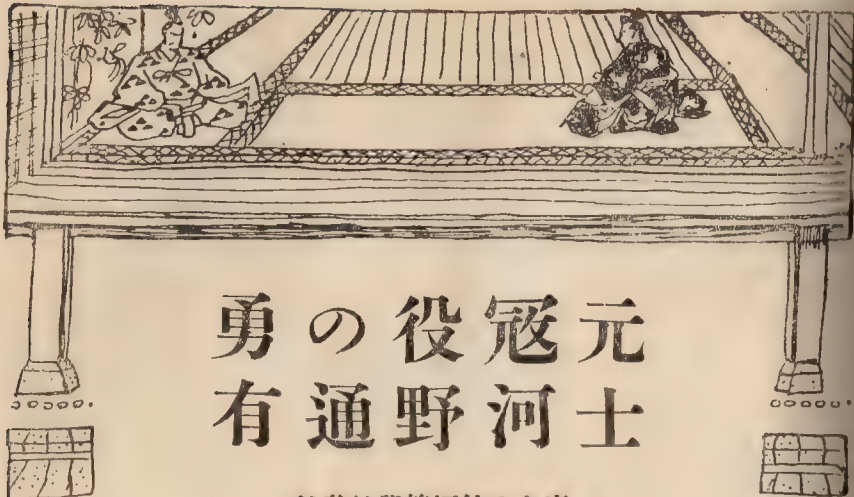 元寇役の勇
士河野通有